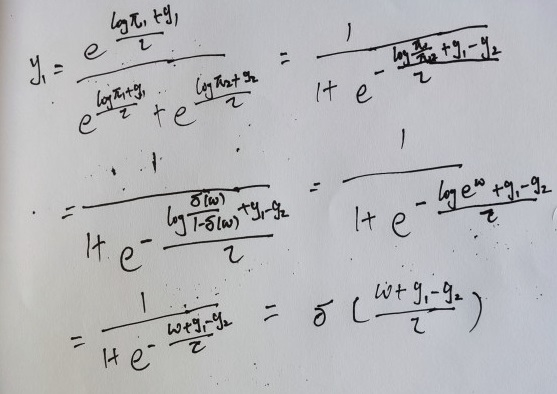 y₁ = e^((logπ₁+g₁)/τ) / (e^((logπ₁+g₁)/τ) + e^((logπ₂+g₂)/τ)) = 1 / (1+e^(-(log(π₁/π₂)+g₁-g₂)/τ))
= 1 / (1+e^(-(log(σ(ω)/(1-σ(ω)))+g₁-g₂)/τ)) = 1 / (1+e^(-(log e^ω+g₁-g₂)/τ))
= 1 / (1+e^(-(ω+g₁-g₂)/τ)) = σ((ω+g₁-g₂)/τ)